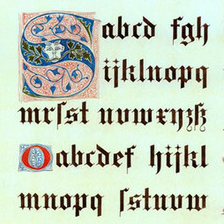 S abcd fgh
ijklnopq
mrſst uvwxyzß
O abcdef hijkl
mnopq ſstuvw